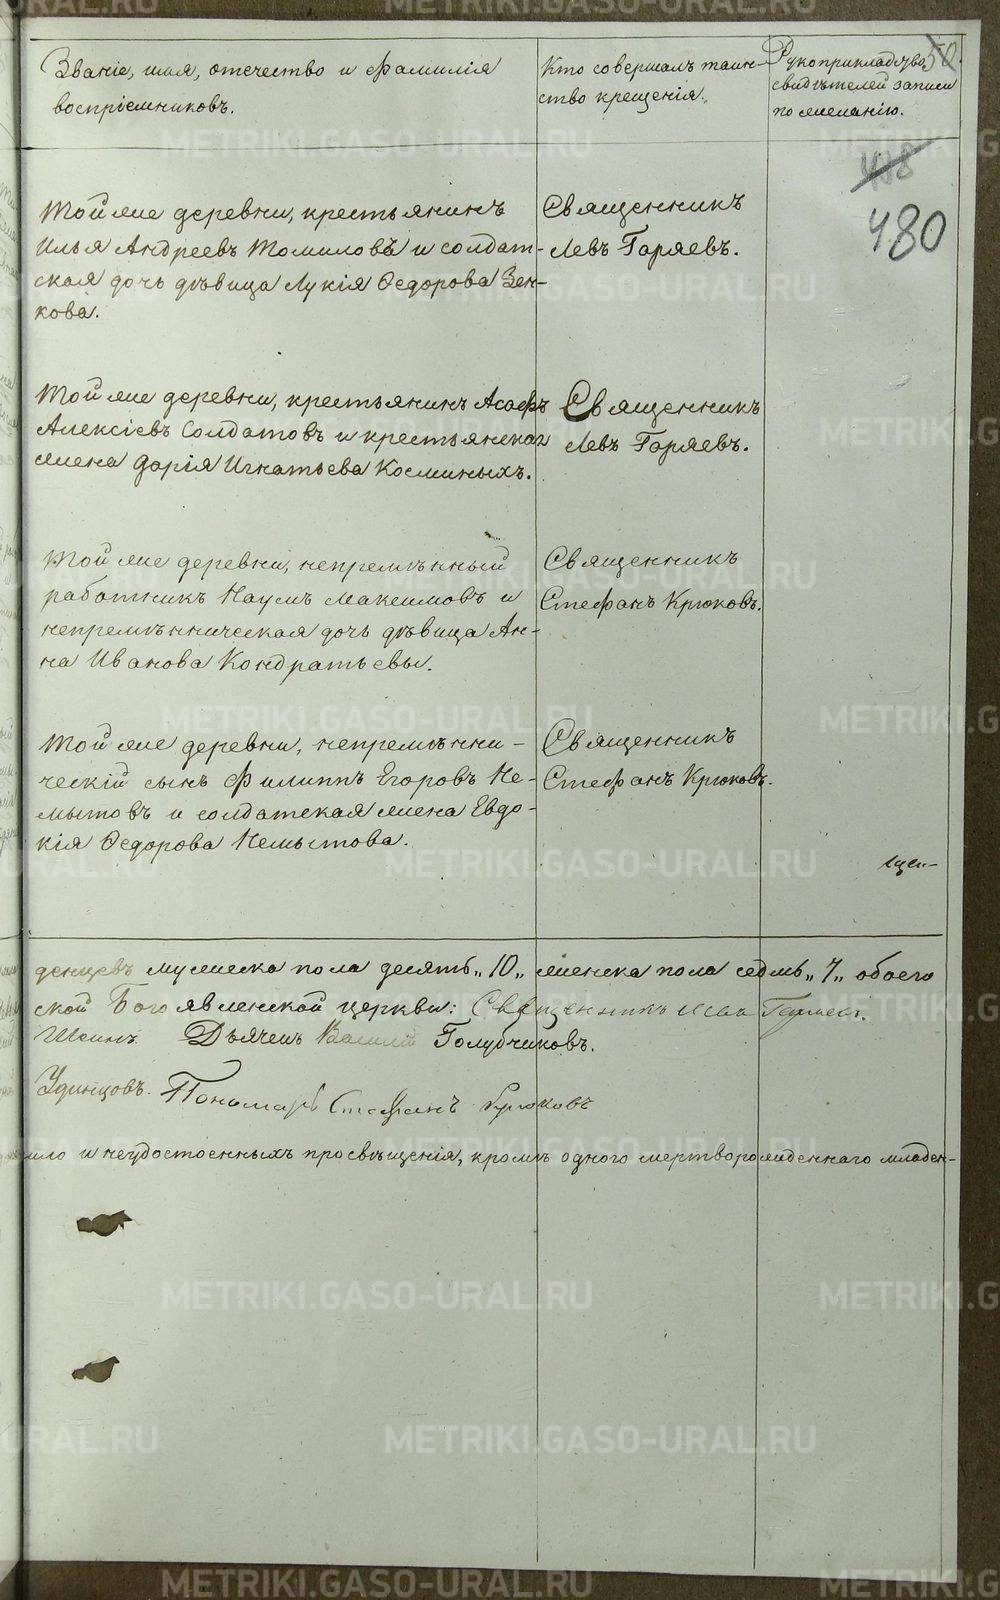 Званіе, имя, отечество и фамилія
воспріемниковъ.
Кто совершалъ таин-
ство крещенія.
Рукоприкладство
свидѣтелей записи
по желанію.
50
478
480
Той же деревни, крестьянинъ
Илья Андреевъ Томиловъ и солдат-
ская дочь дѣвица Лукія Ѳедорова Зен-
кова.
Священникъ
Левъ Гаряевъ.
Той же деревни, крестьянинъ Асафъ
Алексіевъ Солдатовъ и крестьянская
жена Дарія Игнатьева Косминыхъ.
Священникъ
Левъ Гаряевъ.
Той же деревни, непремѣнный
работникъ Наумъ Максимовъ и
непремѣнническая дочь дѣвица Ан-
на Иванова Кондратьевы.
Священникъ
Стефанъ Крюковъ.
Той же деревни, непремѣнни-
ческій сынъ Филиппъ Егоровъ Не-
мытовъ и солдатская жена Евдо-
кія Ѳедорова Немытова.
Священникъ
Стефанъ Крюковъ.
денцевъ мужеска пола десять „10„ женска пола седмь „7„ обоего
ской Богоявленской церкви: Священникъ Гаряевъ.
Дьячекъ Василій Голубчиковъ.
Удинцовъ. Пономарь Стефанъ Крюковъ
и неудостоенныхъ просвѣщенія, кромѣ одного мертворожденнаго младен-
METRIKI.GASO-URAL.RU